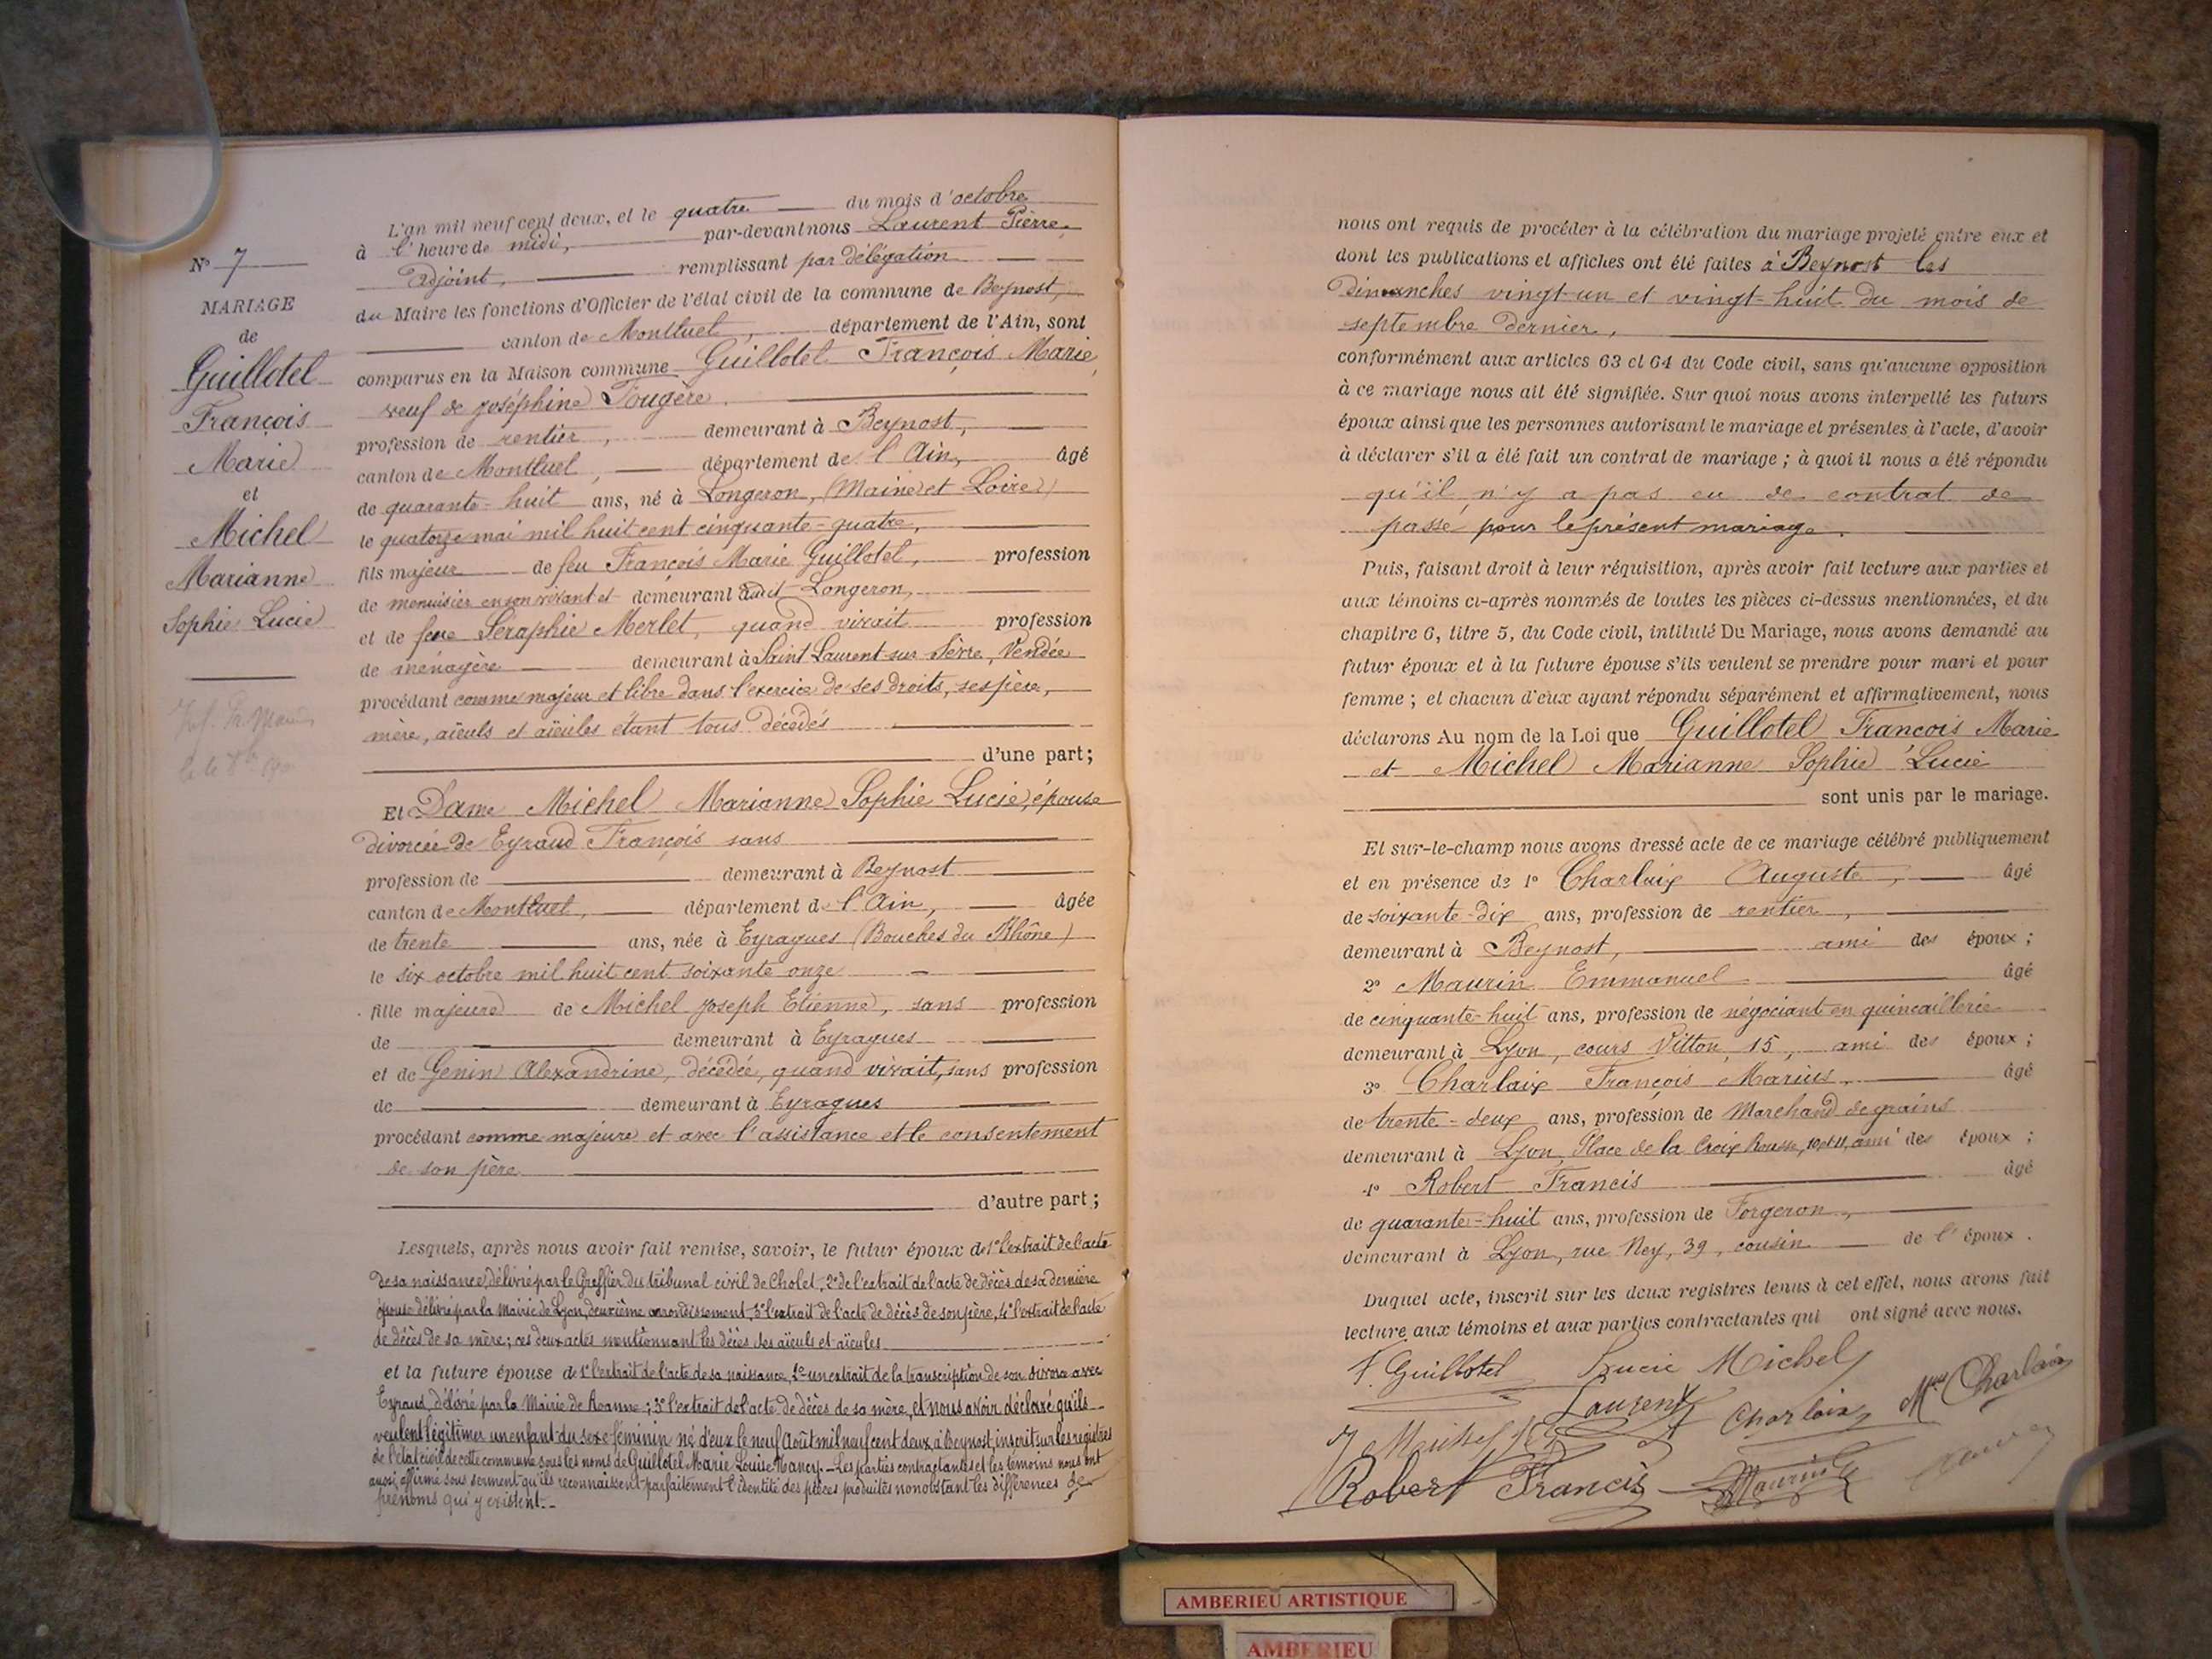 N° 7
MARIAGE
de
Guillotel
François
Marie
et
Michel
Marianne
Sophie Lucie
L'an mil neuf cent deux, et le quatre du mois d'octobre
à l'heure de midi, par-devant nous Laurent Pierre,
adjoint, remplissant par délégation
du Maire les fonctions d'Officier de l'état civil de la commune de Beynost,
canton de Montluel, département de l'Ain, sont
comparus en la Maison commune Guillotel François Marie,
veuf de Joséphine Fougère.
profession de rentier, demeurant à Beynost,
canton de Montluel, département de l'Ain, âgé
de quarante-huit ans, né à Longeron, (Maine et Loire)
le quatorze mai mil huit cent cinquante-quatre,
fils majeur de feu François Marie Guillotel, profession
de menuisier en son vivant et demeurant audit Longeron,
et de feue Séraphie Merlet, quand vivait profession
de ménagère demeurant à Saint Laurent-sur Sèvre, Vendée
procédant comme majeur et libre dans l'exercice de ses droits, ses père,
mère, aïeuls et aïeules étant tous décédés
d'une part;
Et Dame Michel Marianne Sophie Lucie, épouse
divorcée de Eyraud François sans
profession de demeurant à Beynost
canton de Montluel, département de l'Ain, âgée
de trente ans, née à Eyragues (Bouches du Rhône)
le six octobre mil huit cent soixante onze
fille majeure de Michel Joseph Etienne, sans profession
de demeurant à Eyragues
et de Genin Alexandrine, décédée, quand vivait, sans profession
de demeurant à Eyragues
procédant comme majeure et avec l'assistance et le consentement
de son père
d'autre part;
Lesquels, après nous avoir fait remise, savoir, le futur époux de 1° l'extrait de l'acte
de sa naissance, délivré par le Greffier du tribunal civil de Cholet, 2° de l'extrait de l'acte de décès de sa dernière
épouse délivré par la Mairie de Lyon, deuxième arrondissement, 3° l'extrait de l'acte de décès de son père, 4° l'extrait de l'acte
de décès de sa mère; ces deux actes mentionnant les décès des aïeuls et aïeules
et la future épouse de 1° l'extrait de l'acte de sa naissance, 2° un extrait de la transcription de son divorce avec
Eyraud, délivré par la Mairie de Roanne; 3° l'extrait de l'acte de décès de sa mère, et nous avoir déclaré qu'ils
veulent légitimer un enfant du sexe féminin né d'eux le neuf Août mil neuf cent deux, à Beynost, inscrit sur les registres
de l'état civil de cette commune sous les noms de Guillotel Marie Louise Nancy. - Les parties contractantes et les témoins nous ont
aussi affirmé sous serment qu'ils reconnaissent parfaitement l'identité des pièces produites nonobstant les différences de
prénoms qui y existent.
nous ont requis de procéder à la célébration du mariage projeté entre eux et
dont les publications et affiches ont été faites à Beynost les
Dimanches vingt-un et vingt-huit du mois de
septembre dernier,
conformément aux articles 63 et 64 du Code civil, sans qu'aucune opposition
à ce mariage nous ait été signifiée. Sur quoi nous avons interpellé les futurs
époux ainsi que les personnes autorisant le mariage et présentes à l'acte, d'avoir
à déclarer s'il a été fait un contrat de mariage; à quoi il nous a été répondu
qu'il n'y a pas eu de contrat de
passé, pour le présent mariage.
Puis, faisant droit à leur réquisition, après avoir fait lecture aux parties et
aux témoins ci-après nommés de toutes les pièces ci-dessus mentionnées, et du
chapitre 6, titre 5, du Code civil, intitulé Du Mariage, nous avons demandé au
futur époux et à la future épouse s'ils veulent se prendre pour mari et pour
femme; et chacun d'eux ayant répondu séparément et affirmativement, nous
déclarons Au nom de la Loi que Guillotel François Marie
et Michel Marianne Sophie Lucie
sont unis par le mariage.
Et sur-le-champ nous avons dressé acte de ce mariage célébré publiquement
et en présence de 1° Charlaix Auguste, âgé
de soixante-dix ans, profession de rentier,
demeurant à Beynost, ami des époux;
2° Maurin Emmanuel âgé
de cinquante-huit ans, profession de négociant en quincaillerie
demeurant à Lyon, cours Vitton, 15, ami des époux;
3° Charlaix François Marius âgé
de trente-deux ans, profession de Marchand de grains
demeurant à Lyon, Place de la Croix Rousse, 10 et 11, ami des époux;
4° Robert Francis âgé
de quarante-huit ans, profession de Forgeron,
demeurant à Lyon, rue Ney, 39, cousin de l'époux.
Duquel acte, inscrit sur les deux registres tenus à cet effet, nous avons fait
lecture aux témoins et aux parties contractantes qui ont signé avec nous.
F. Guillotel Lucie Michel
Laurent Charlaix Charlaix
Robert Francis Maurin
AMBERIEU ARTISTIQUE
AMBERIEU